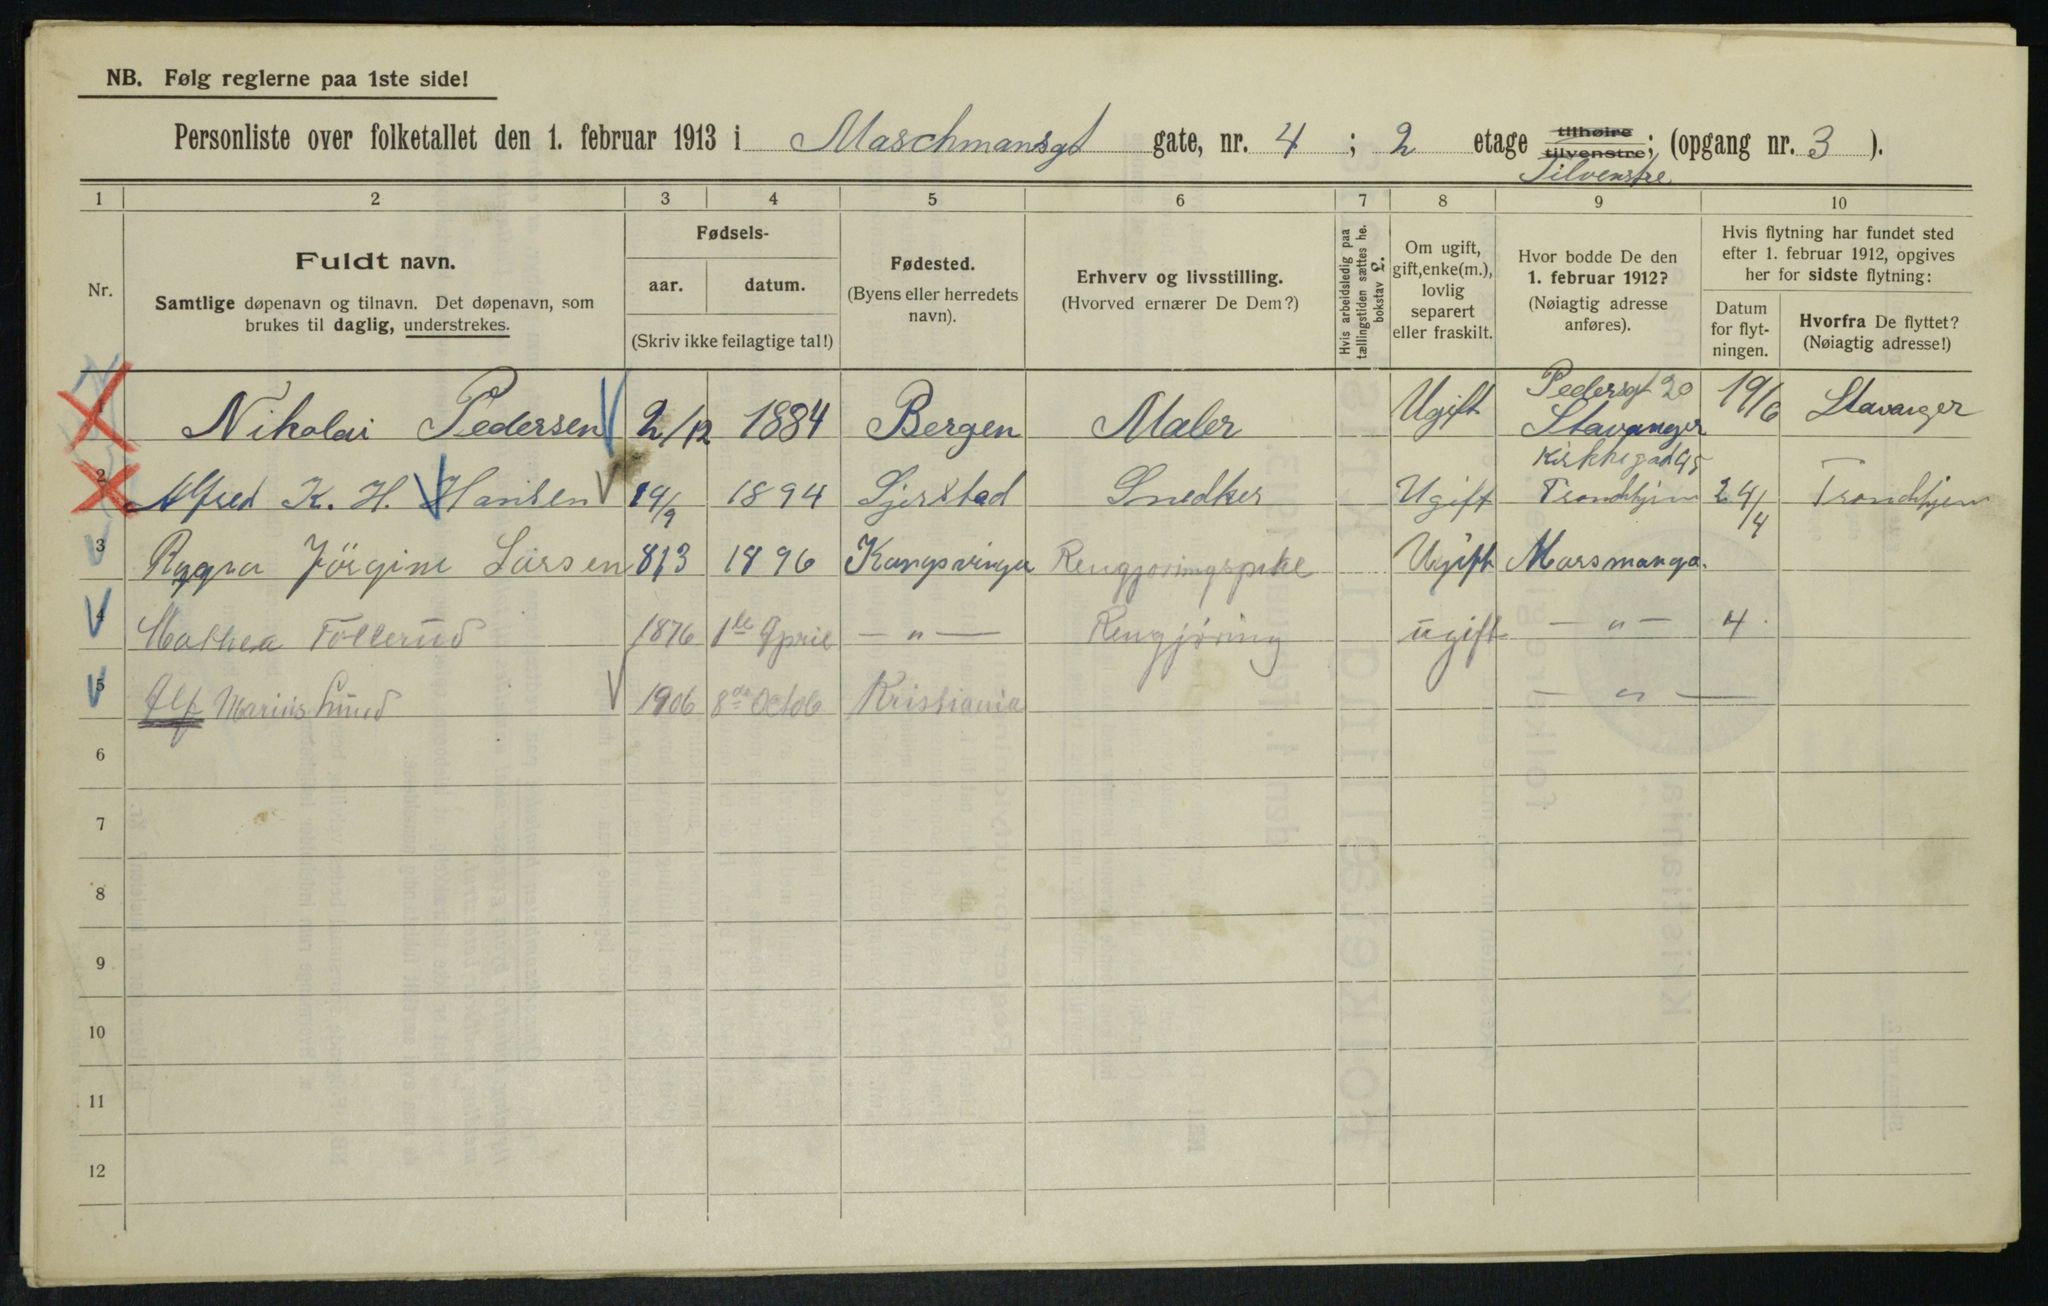 NB. Følg reglerne paa 1ste side!
Personliste over folketallet den 1. februar 1913 i Maschmansgt gate, nr. 4 ; 2 etage tilhøire tilvenstre; (opgang nr. 3 ).
Tilvenstre
1 2 3 4 5 6 7 8 9 10
Nr.
Fuldt navn.
Samtlige døpenavn og tilnavn. Det døpenavn, som
brukes til daglig, understrekes.
Fødsels-
aar. datum.
(Skriv ikke feilagtige tal!)
Fødested.
(Byens eller herredets
navn).
Erhverv og livsstilling.
(Hvorved ernærer De Dem?)
Hvis arbeidsledig paa
tællingstiden sættes he.
bokstav L.
Om ugift,
gift, enke(m.),
lovlig
separert
eller fraskilt.
Hvor bodde De den
1. februar 1912?
(Nøiagtig adresse
anføres).
Hvis flytning har fundet sted
efter 1. februar 1912, opgives
her for sidste flytning:
Datum
for flyt-
ningen.
Hvorfra De flyttet?
(Nøiagtig adresse!)
Pedersgt 20
1 Nikolai Pedersen 2/12 1884 Bergen Maler Ugift Stavanger 19/6 Stavanger
Kirkegad 45
2 Alfred K. H. Hansen 19/9 1894 Gjerstad Snedker Ugift Trondhjem 24/4 Trondhjem
3 Ragna Jörgine Larsen 8/3 1896 Kongsvinger Rengjøringspike Ugift Marsmanga.
4 Mathea Tollerud 1876 1ste April — " — Rengjøring ugift — " — 4.
5 Alf Marius Lund 1906 8de Octob Kristiania — " —
6
7
8
9
10
11
12